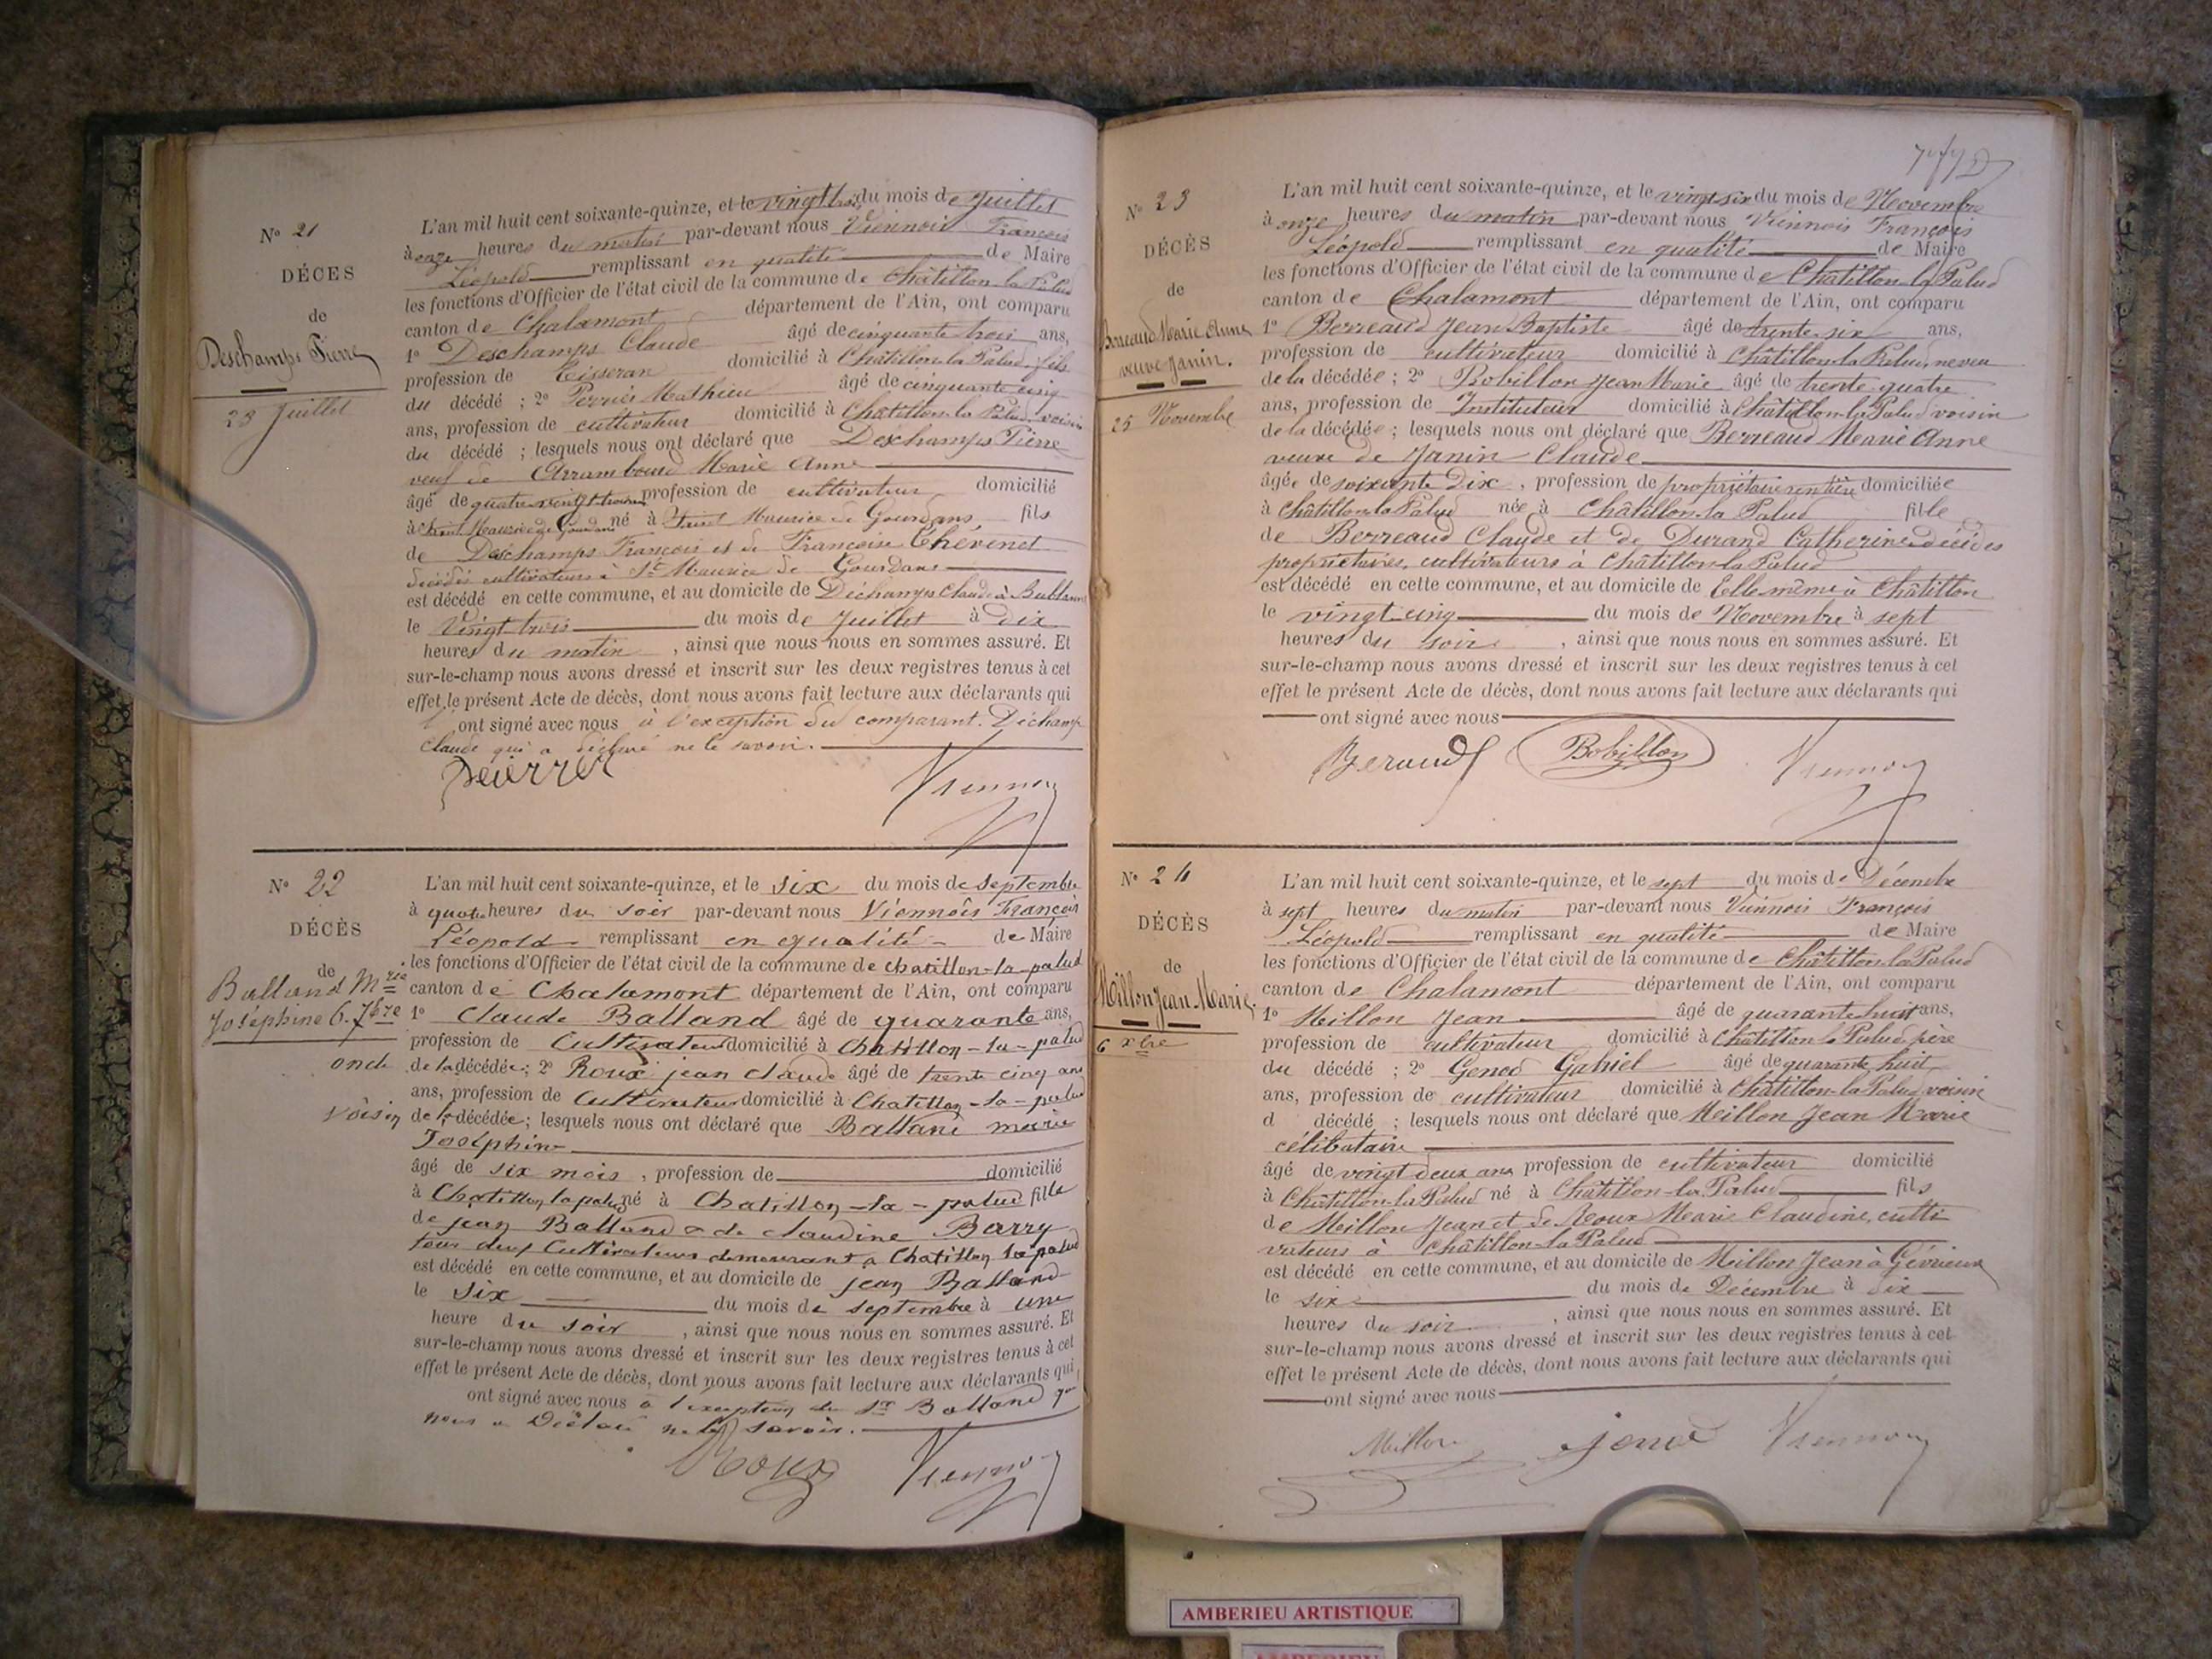 N° 21
DÉCES
de
Deschamps Pierre
23 Juillet
L'an mil huit cent soixante-quinze, et le vingt trois du mois de Juillet
à onze heures du matin par-devant nous Viennois François
Léopold remplissant en qualité de Maire
les fonctions d'Officier de l'état civil de la commune de Châtillon la Palud
canton de Chalamont département de l'Ain, ont comparu
1° Deschamps Claude âgé de cinquante trois ans,
profession de tisseran domicilié à Châtillon la Palud, fils
du décédé ; 2° Perrier Mathieu âgé de cinquante cinq
ans, profession de cultivateur domicilié à Châtillon la Palud voisin
du décédé ; lesquels nous ont déclaré que Deschamps Pierre
veuf de Arrambourd Marie Anne
âgé de quatre vingt profession de cultivateur domicilié
à Saint Maurice de Gourdans né à Saint Maurice de Gourdans fils
de Deschamps François et de Françoise Chevenet
décédés cultivateurs à St Maurice de Gourdans
est décédé en cette commune, et au domicile de Déchamps Claude à
le Vingt trois du mois de Juillet à dix
heures du matin , ainsi que nous nous en sommes assuré. Et
sur-le-champ nous avons dressé et inscrit sur les deux registres tenus à cet
effet le présent Acte de décès, dont nous avons fait lecture aux déclarants qui
ont signé avec nous à l'exception du comparant Déchamp
Claude qui a déclaré ne le savoir.
N° 22
DÉCÈS
de
Balland Mrie
Joséphine 6. 7bre
oncle
voisin
L'an mil huit cent soixante-quinze, et le six du mois de septembre
à quatre heures du soir par-devant nous Viennois François
Léopold remplissant en qualité de Maire
les fonctions d'Officier de l'état civil de la commune de chatillon-la-palud
canton de Chalamont département de l'Ain, ont comparu
1° Claude Balland âgé de quarante ans,
profession de Cultivateur domicilié à Chatillon-la-palud
de la décédée; 2° Roux jean claude âgé de trente cinq ans
ans, profession de Cultivateur domicilié à Chatillon-la-palud
de la décédée; lesquels nous ont déclaré que Balland marie
Joséphine
âgé de six mois , profession de domicilié
à Chatillon la palud né à Chatillon-la-palud fille
de jean Balland & de claudine Barry
tous deux Cultivateurs demeurant à Chatillon la palud
est décédé en cette commune, et au domicile de jean Balland
le Six du mois de septembre à une
heure du soir , ainsi que nous nous en sommes assuré. Et
sur-le-champ nous avons dressé et inscrit sur les deux registres tenus à cet
effet le présent Acte de décès, dont nous avons fait lecture aux déclarants qui
ont signé avec nous a l'exception du Sr Balland qui
nous a Déclaré ne le savoir.
Roux Viennois
N° 23
DÉCÈS
de
Berreaud Marie Anne
veuve Janin.
25 Novembre
L'an mil huit cent soixante-quinze, et le vingt six du mois de Novembre
à onze heures du matin par-devant nous Viennois François
Léopold remplissant en qualité de Maire
les fonctions d'Officier de l'état civil de la commune de Châtillon la Palud
canton de Chalamont département de l'Ain, ont comparu
1° Berreaud Jean Baptiste âgé de trente six ans,
profession de cultivateur domicilié à Châtillon la Palud, neveu
de la décédée ; 2° Bobillon Jean Marie âgé de trente quatre
ans, profession de Instituteur domicilié à Châtillon-la-Palud voisin
de la décédée ; lesquels nous ont déclaré que Berreaud Marie Anne
veuve de Janin Claude
âgée de soixante Dix , profession de propriétaire rentière domiciliée
à Châtillon la Palud née à Châtillon-la Palud fille
de Berreaud Claude et de Durand Catherine décédés
propriétaires, cultivateurs à Châtillon-la Palud
est décédé en cette commune, et au domicile de Elle même à Châtillon
le vingt cinq du mois de Novembre à sept
heures du soir , ainsi que nous nous en sommes assuré. Et
sur-le-champ nous avons dressé et inscrit sur les deux registres tenus à cet
effet le présent Acte de décès, dont nous avons fait lecture aux déclarants qui
ont signé avec nous
Beraud Bobillon Viennois
N° 24
DÉCÈS
de
Millon Jean Marie.
6 Xbre
L'an mil huit cent soixante-quinze, et le sept du mois de Décembre
à sept heures du matin par-devant nous Viennois François
Léopold remplissant en qualité de Maire
les fonctions d'Officier de l'état civil de la commune de Châtillon la Palud
canton de Chalamont département de l'Ain, ont comparu
1° Millon Jean âgé de quarante huit ans,
profession de cultivateur domicilié à Châtillon la Palud, père
du décédé ; 2° Genod Gabriel âgé de quarante huit
ans, profession de cultivateur domicilié à Châtillon-la Palud, voisin
d décédé ; lesquels nous ont déclaré que Millon Jean Marie
célibataire
âgé de vingt deux ans profession de cultivateur domicilié
à Châtillon-la Palud né à Châtillon-la Palud fils
de Millon Jean et de Roux Marie Claudine, culti
vateurs à Châtillon-la Palud
est décédé en cette commune, et au domicile de Millon Jean à Gévrieux
le six du mois de Décembre à dix
heures du soir , ainsi que nous nous en sommes assuré. Et
sur-le-champ nous avons dressé et inscrit sur les deux registres tenus à cet
effet le présent Acte de décès, dont nous avons fait lecture aux déclarants qui
ont signé avec nous
Millon Viennois
AMBERIEU ARTISTIQUE
AMBERIEU